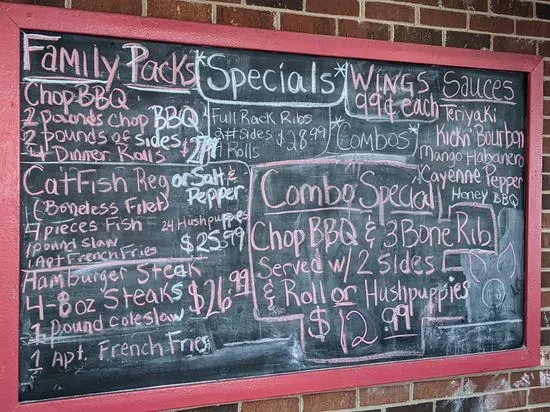 Family Packs
Chop BBQ
2 pounds chop BBQ
2 pounds of sides
4 Dinner Rolls
Catfish Reg or Salt & Pepper
(Boneless Filet)
4 pieces Fish 24 Hushpuppies
1 pound slaw
1 Apt French Fries
$25.99
Hamburger Steak
4-8oz Steaks
$26.99
1 Pound coleslaw
1 Apt. French Fries
*Specials*
Full Rack Ribs
2# Sides $28.99
Rolls
*Combos*
Combo Special
Chop BBQ & 3 Bone Rib
Served w/ 2 sides
& Roll or Hushpuppies
$12.99
Wings
99¢ each
Sauces
Teriyaki
Kickn' Bourbon
Mango Habanero
Cayenne Pepper
Honey BBQ